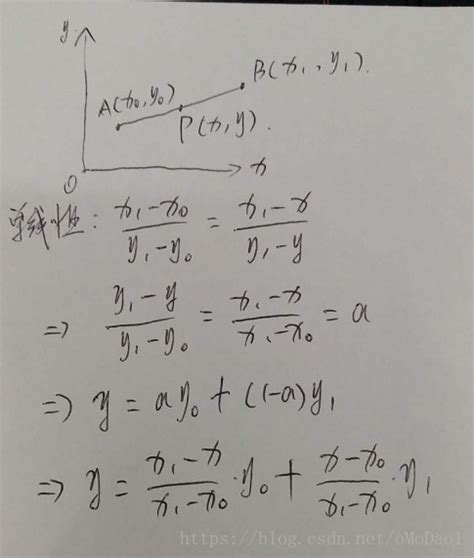 y
A(x₀,y₀)
B(x₁, y₁).
P(x,y).
O
x
单线性: (x₁-x₀)/(y₁-y₀) = (x₁-x)/(y₁-y)
=> (y₁-y)/(y₁-y₀) = (x₁-x)/(x₁-x₀) = a
=> y = ay₀ + (1-a)y₁
=> y = (x₁-x)/(x₁-x₀)·y₀ + (x-x₀)/(x₁-x₀)·y₁
https://blog.csdn.net/oMoDao1